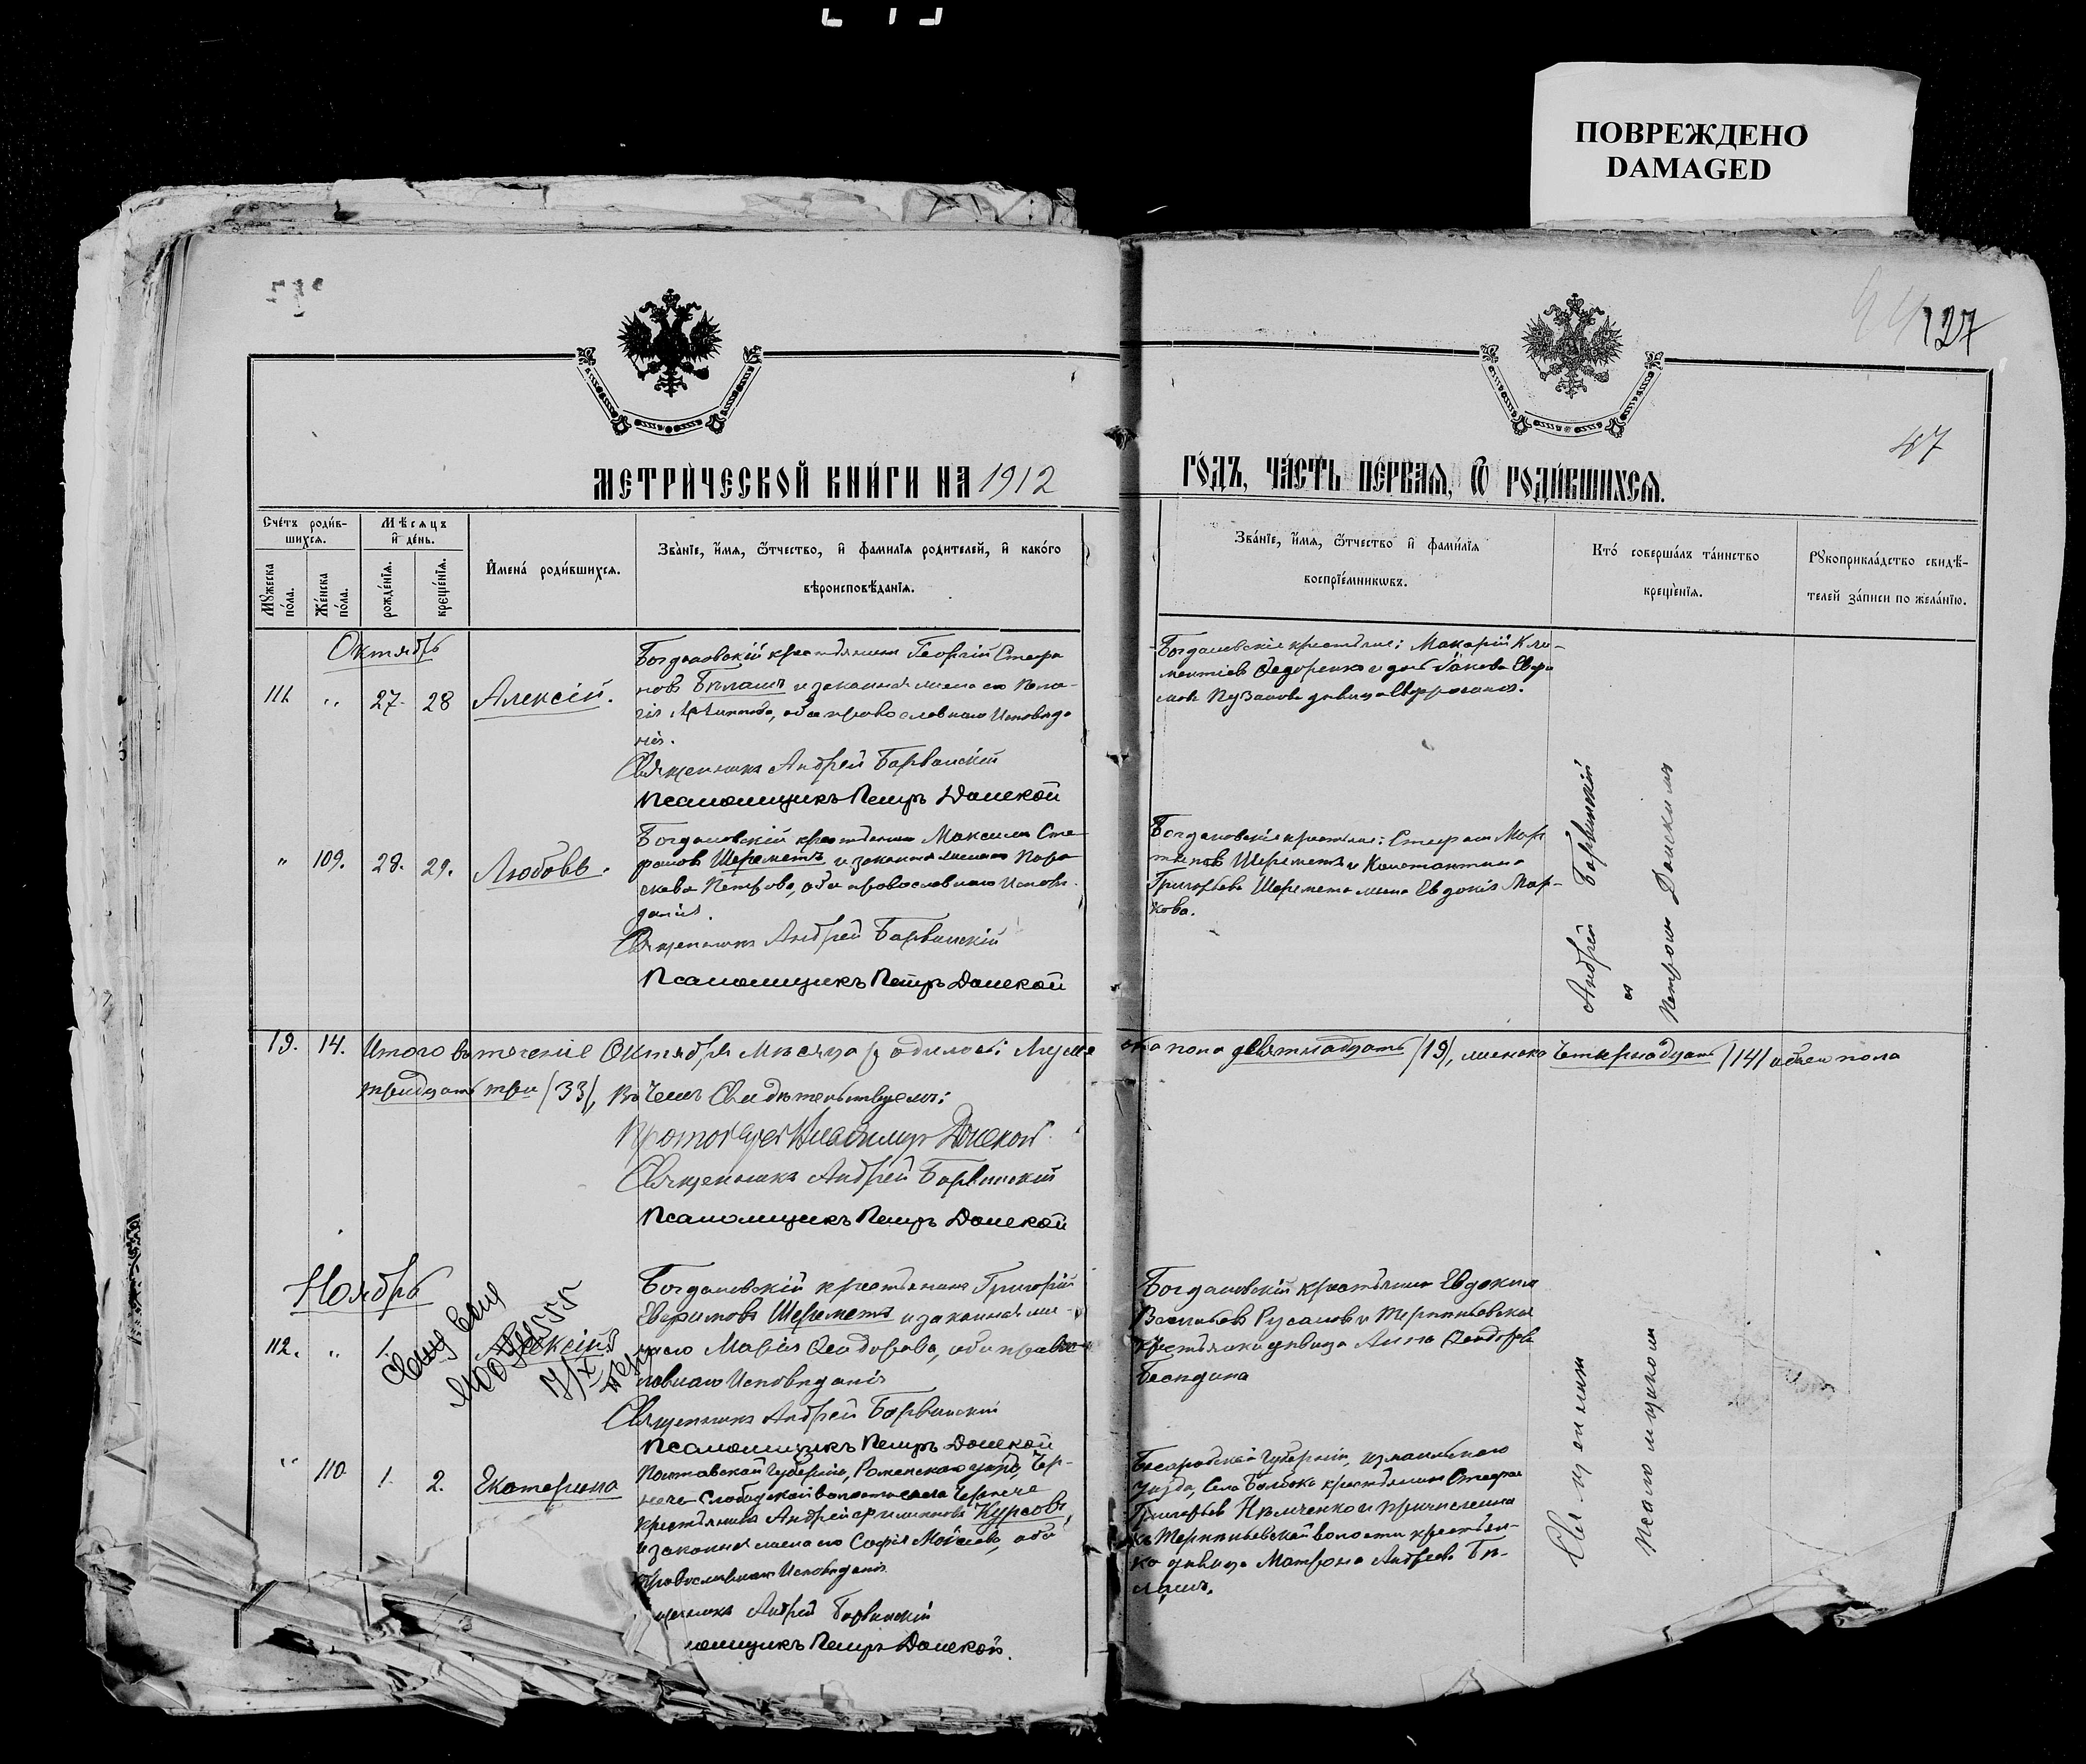 ПОВРЕЖДЕНО
DAMAGED
127
47
МЕТРИЧЕСКОЙ КНИГИ НА 1912
ГОДЪ, ЧАСТЬ ПЕРВАЯ, Ѡ РОДИВШИХСЯ.
Счетъ родив-
шихся.
Мѣсяцъ
и день.
Имена родившихся.
Званіе, имя, ѿчество, и фамилія родителей, и какого
вѣроисповѣданія.
Мужеска
пола.
Женска
пола.
рожденія.
крещенія.
Званіе, имя, ѿчество и фамилія
воспріемниковъ.
Кто совершалъ таинство
крещенія.
Рукоприкладство свидѣ-
телей записи по желанію.
Октябрь
111. " 27. 28 Алексій.
Богдановскій крестьянинъ Георгій Стефа
новъ Бѣлашъ и законная жена его Пела-
гія, оба православнаго Исповѣда
нія.
Священникъ Андрей Барвинскій
Псаломщикъ Петръ Донской
Богдановскіе крестьяне: Макарій Кли-
ментіевъ Федоренко и дочь Якова Евфи
мова Пузанова дѣвица Евфросинія.
" 109. 28. 29. Любовь.
Богдановскій крестьянинъ Максимъ Сте-
фановъ Шереметъ и законная жена его Пара-
скева Петрова, оба православнаго Исповѣ-
данія.
Священникъ Андрей Барвинскій
Псаломщикъ Петръ Донской
Богдановскіе крестьяне: Стефанъ Мар
тиновъ Шереметъ и Константина
Григорьева Шеремета жена Евдокія Мар-
кова.
Андрей Барвинскій
и
Петромъ Донскимъ
19. 14. Итого въ теченіе Октября мѣсяца родилось: Муже
ска пола девятнадцать (19), женска Четырнадцать (14) обоего пола
тридцать три (33), Въ чемъ Свидѣтельствуемъ:
Протоіерей Владимиръ Донской
Священникъ Андрей Барвинскій
Псаломщикъ Петръ Донской
Ноябрь
112. " 1. Алексій.
Богдановскій крестьянинъ Григорій
Евфимовъ Шереметъ и законная же-
на его Марія Феодорова, оба правос
лавнаго Исповѣданія
Священникъ Андрей Барвинскій
Псаломщикъ Петръ Донской
Богдановскій крестьянинъ Евдокимъ
Васильевъ Русановъ и Терпѣньевская
крестьянка дѣвица Анна Феодорова
Бесѣдина
" 110 1. 2. Екатерина
Полтавской Губерніи, Роменскаго уѣзда, Чер-
нече Слободской волости села Чернече
крестьянинъ Андрей Филипповъ Курсовъ,
и законная жена его Софія Моисеева, оба
Православнаго Исповѣданія
щенникъ Андрей Барвинскій
ломщикъ Петръ Донской.
Бессарабской Губерніи, Измаильскаго
уѣзда, Села крестьянинъ Стефанъ
Григорьевъ Нѣмченко и причисленная
къ Терпѣньевской волости крестьян-
ка дѣвица Матрона Андреева Бѣ-
лашъ.
Священникъ
псаломщикомъ